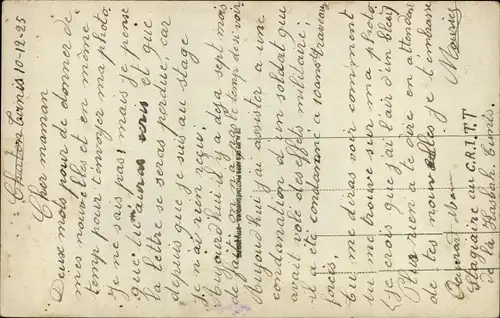 10-12-25
Cher maman
Deux mots pour de donner de
mes nouvelles et en même
temp pour t'envoyer ma photo.
Je ne sais pas, mais je pense
que tu auras et que
la lettre se seras perdue, car
depuis que je suis au stage
j'ai rien reçu.
Aujourd'hui il y a déja sept mois
de
Aujourd'hui j'ai assister a une
condanation d'un soldat qui
avait volé des effets militaire;
il a été condanné a 10 ans travaux
forcés.
tu me diras voir comment
tu me trouve sur ma photo
(je crois que j'ai l'air d'un bleu)
Plus rien a te dire en attendant
de tes nouvelles je t'embrasse
Maurice
Stagiaire au C.R.I.T.T
de la Kasbah. Tunis.